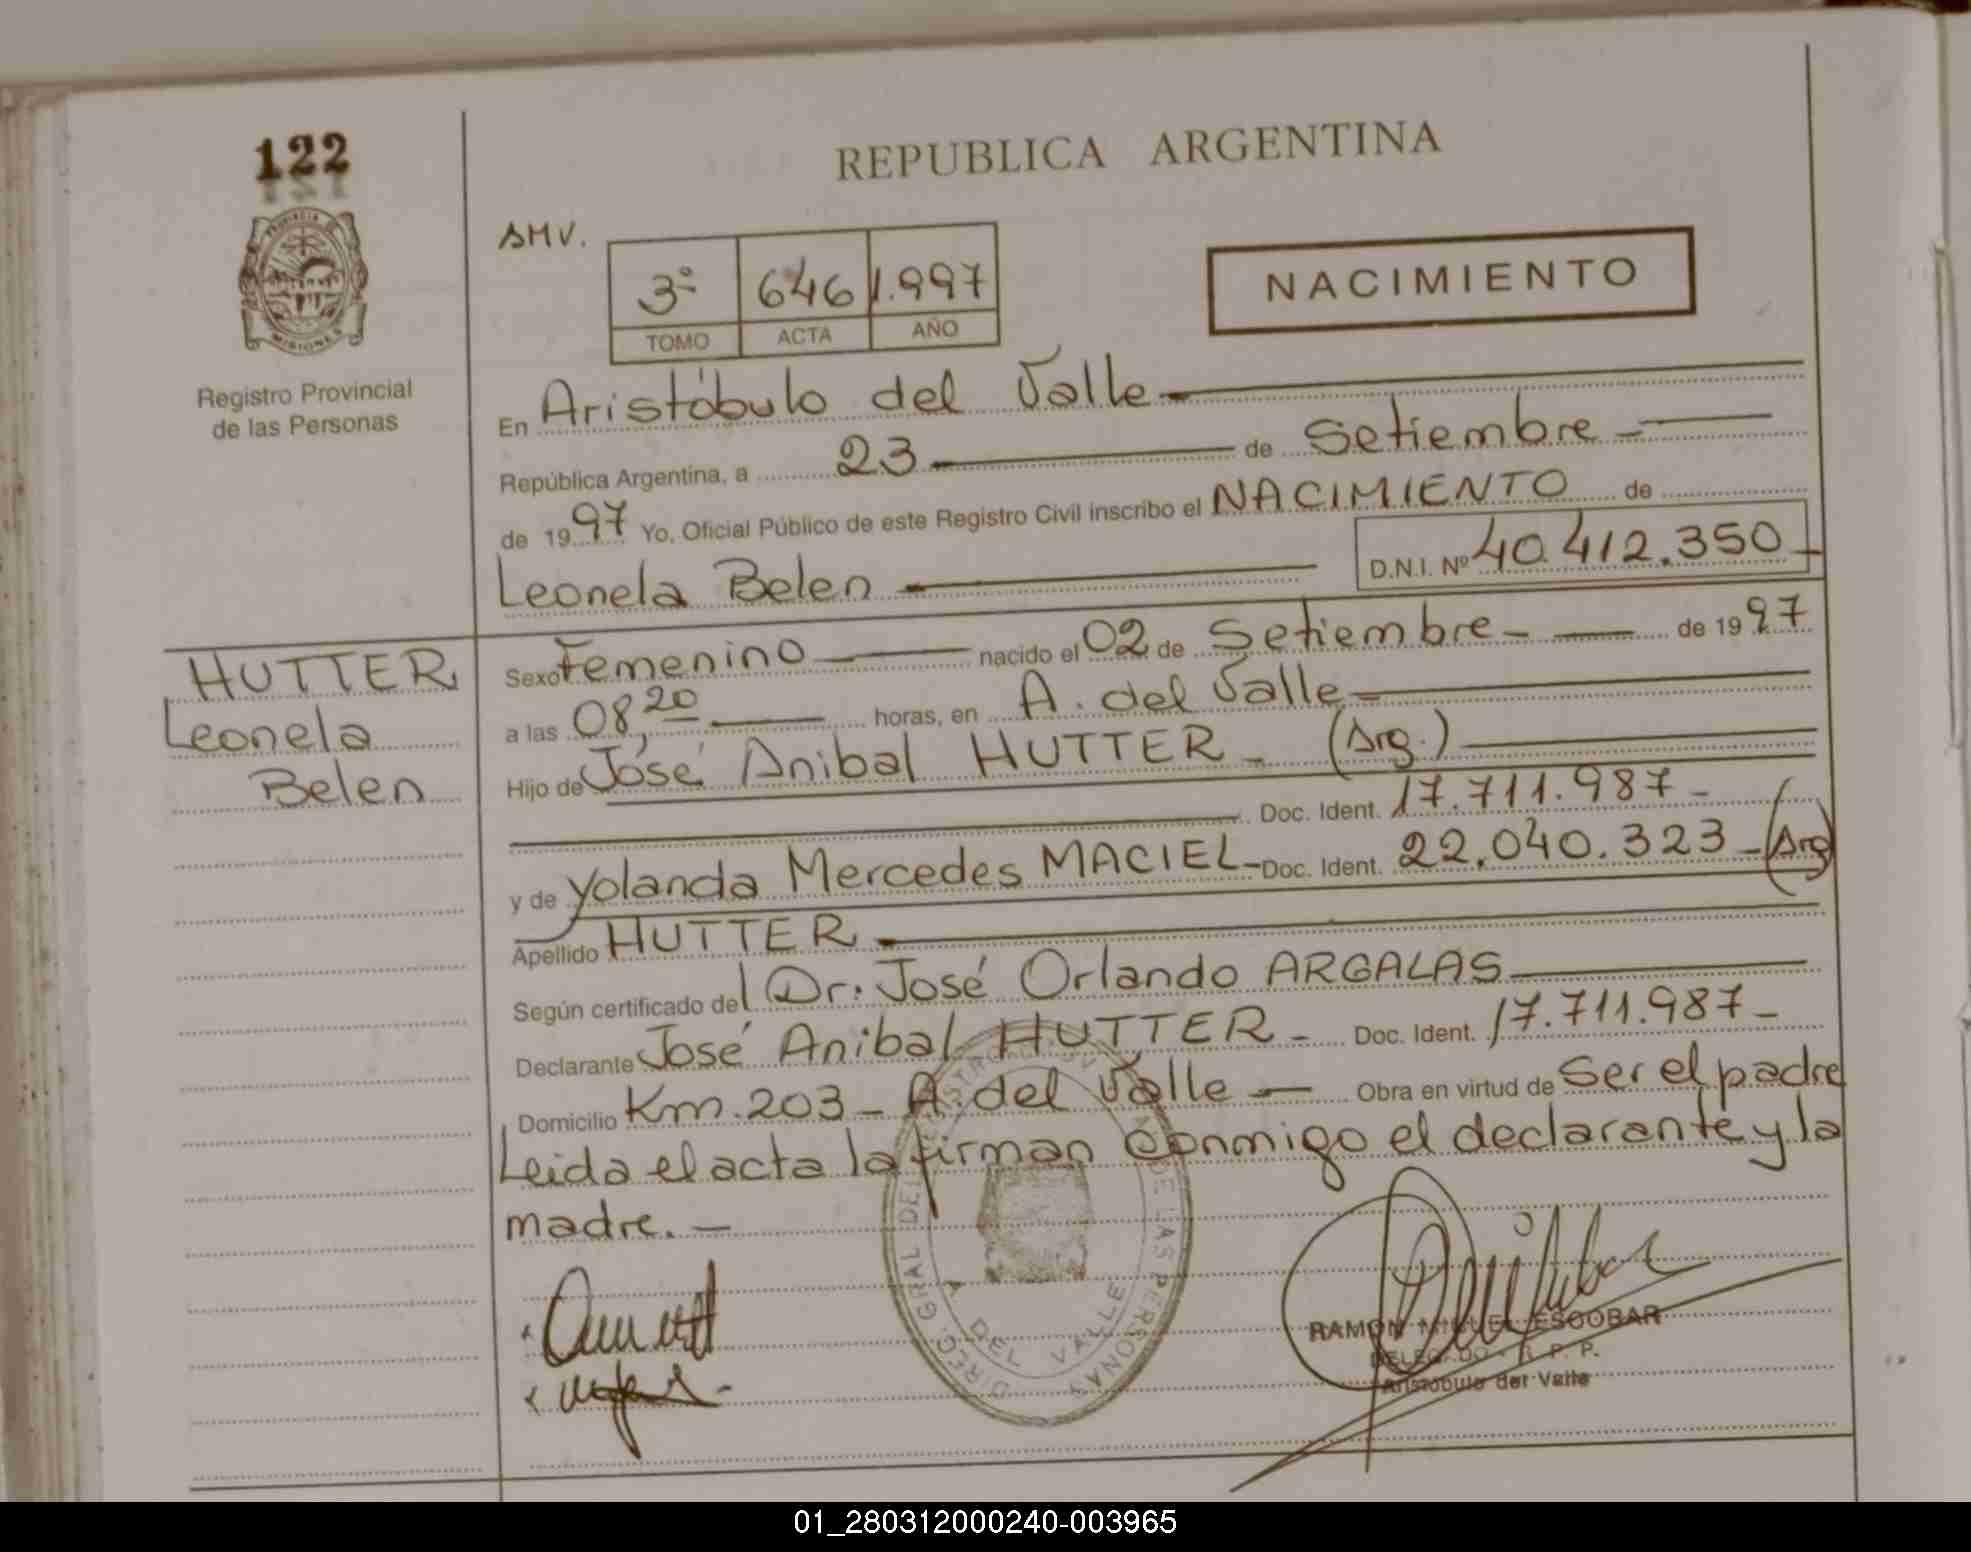 122
REPUBLICA ARGENTINA
PROVINCIA
MISIONES
Registro Provincial
de las Personas
SMV.
3º 646 1.997
TOMO ACTA AÑO
NACIMIENTO
En Aristóbulo del Valle
República Argentina, a 23 de Setiembre
de 1997 Yo, Oficial Público de este Registro Civil inscribo el NACIMIENTO de
Leonela Belen D.N.I. Nº 40.412.350
HUTTER
Leonela
Belen
Sexo Femenino nacido el 02 de Setiembre de 1997
a las 08,20 horas, en A. del Valle
Hijo de José Anibal HUTTER (Arg.)
Doc. Ident. 17.711.987
y de Yolanda Mercedes MACIEL Doc. Ident. 22.040.323 (Arg)
Apellido HUTTER
Según certificado del Dr. José Orlando ARGALAS
Declarante José Anibal HUTTER Doc. Ident. 17.711.987
Domicilio Km. 203 - A. del Valle Obra en virtud de Ser el padre
Leida el acta la firman conmigo el declarante y la
madre.
DIREC. GRAL DEL DE LAS PERSONAS
A DEL VALLE
RAMON MIGUEL ESCOBAR
DELEGADO - R. P. P.
Aristóbulo del Valle
01_280312000240-003965